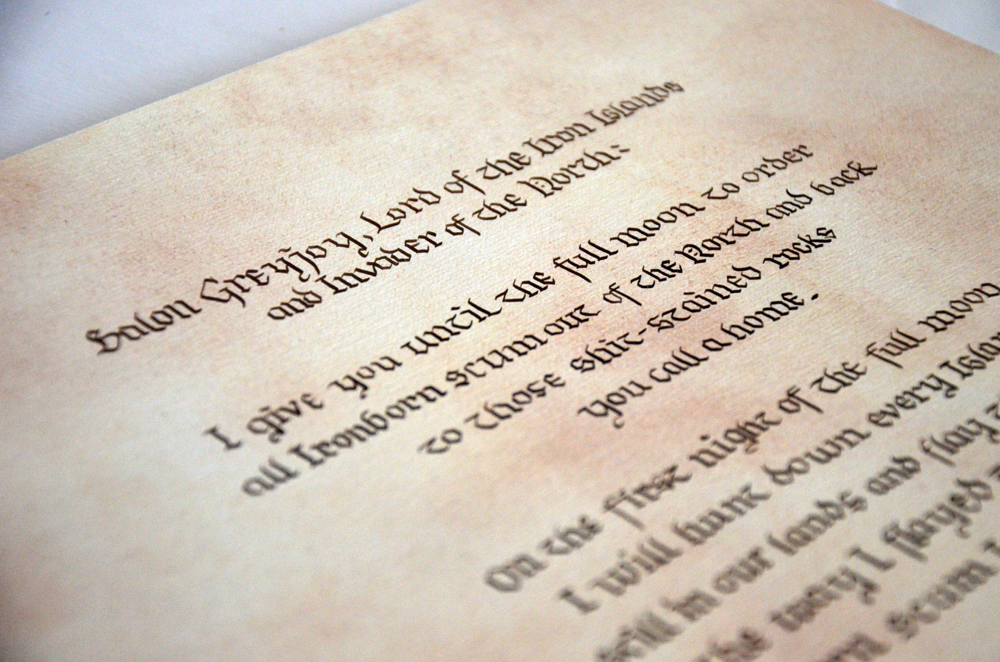 Balon Greyjoy, Lord of the Iron Islands
and Invader of the North:
I give you until the full moon to order
all Ironborn scum out of the North and back
to those shit-stained rocks
you call a home.
On the first night of the full moon
I will hunt down every
still in our lands and flay
the way I flayed
scum I